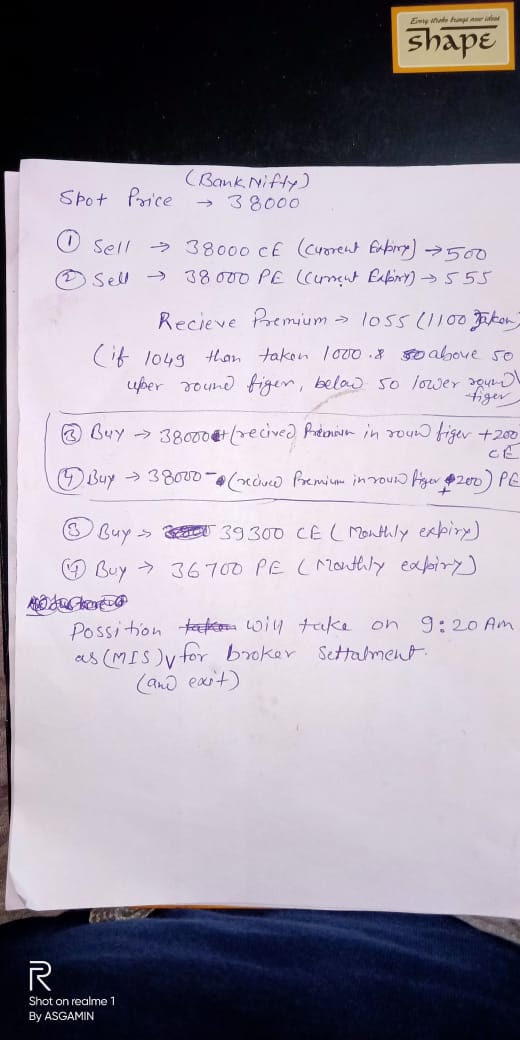 Every stroke brings new ideas
shape
(Bank Nifty)
Spot Price → 38000
① Sell → 38000 CE (Current Expiry) → 500
② Sell → 38000 PE (Current Expiry) → 555
Recieve Premium → 1055 (1100 Taken)
(if 1049 than taken 1000 . & above 50
uper round figer, below 50 lower round
figer)
③ Buy → 38000 + (recived Premium in roun figer +200)
CE
④ Buy → 38000 - (recived Premium in roun figer +200) PE
③ Buy → 39300 CE (Monthly expiry)
④ Buy → 36700 PE (Monthly expiry)
Possition will take on 9:20 Am
as (MIS) for broker Settalment.
(and exit)
R
Shot on realme 1
By ASGAMIN